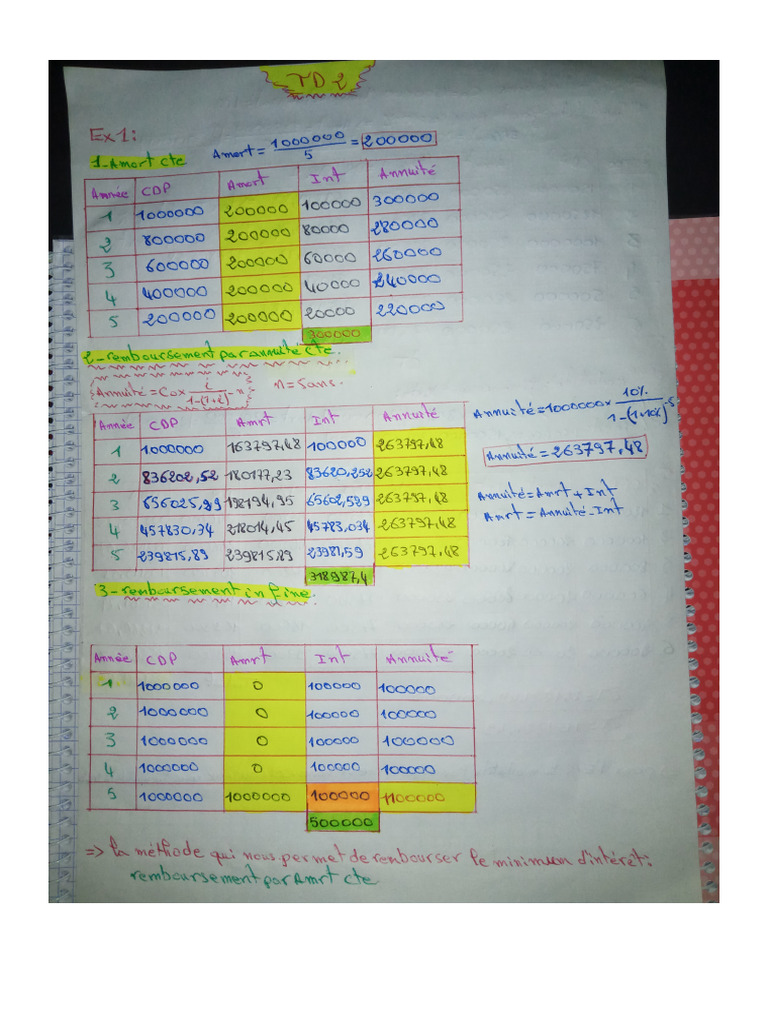 TD2
Ex1:
1-Amort cte
Amort = 1000000 / 5 = 200000
Année CDP Amort Int Annuité
1 1000000 200000 100000 300000
2 800000 200000 80000 280000
3 600000 200000 60000 260000
4 400000 200000 40000 240000
5 200000 200000 20000 220000
300000
2-remboursement par annuité cte.
Annuité = Co x i / 1-(1+i)^-n
n=5ans.
Année CDP Amrt Int Annuité
1 1000000 163797,48 100000 263797,48
2 836202,52 180177,23 83620,252 263797,48
3 656025,29 198194,95 65602,529 263797,48
4 457830,34 218014,45 45783,034 263797,48
5 239815,89 239815,89 23981,59 263797,48
318987,4
Annuité = 1000000 x 10% / 1-(1+10%)^-5
Annuité = 263797,48
Annuité = Amrt + Int
Amrt = Annuité - Int
3-remboursement in fine.
Année CDP Amrt Int Annuité
1 1000000 0 100000 100000
2 1000000 0 100000 100000
3 1000000 0 100000 100000
4 1000000 0 100000 100000
5 1000000 1000000 100000 1100000
500000
=> la méthode qui nous permet de rembourser le minimum d'intérêt:
remboursement par Amrt cte